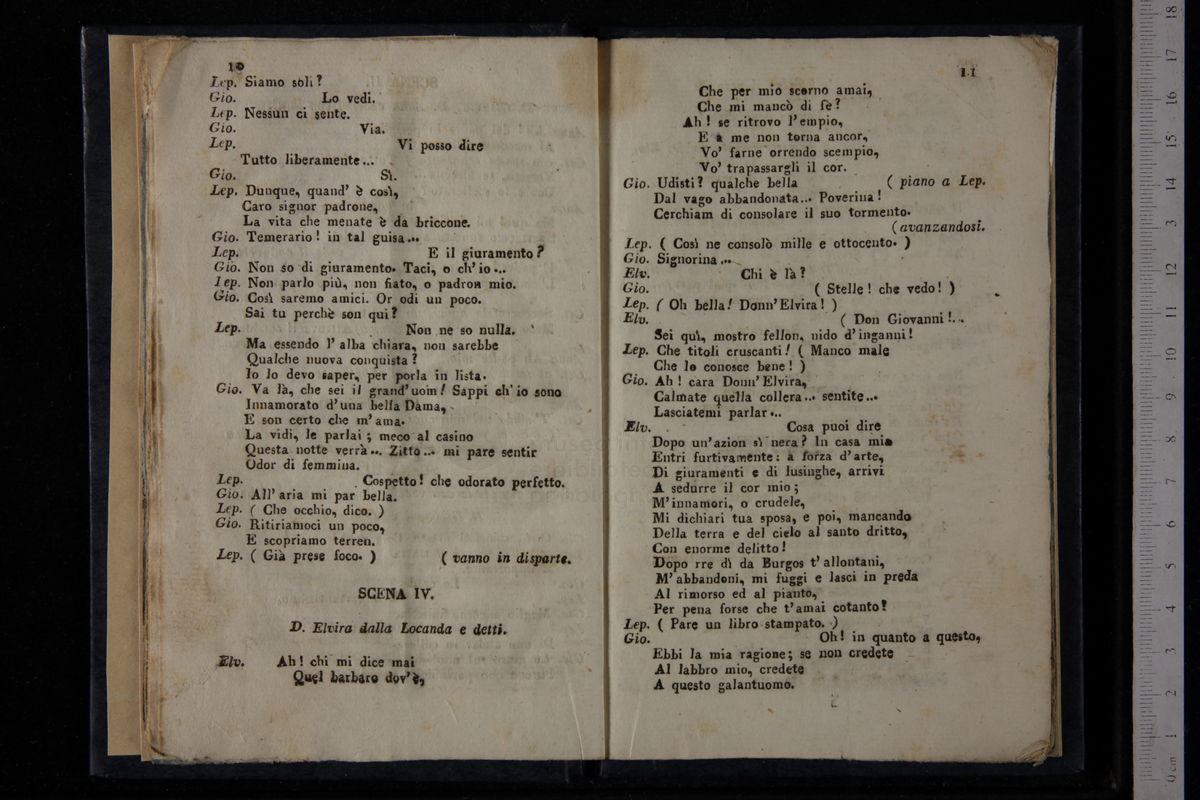 10
Lep. Siamo soli?
Gio. Lo vedi.
Lep. Nessun ci sente.
Gio. Via.
Lep. Vi posso dire
Tutto liberamente...
Gio. Sì.
Lep. Dunque, quand' è così,
Caro signor padrone,
La vita che menate è da briccone.
Gio. Temerario! in tal guisa...
Lep. E il giuramento?
Gio. Non so di giuramento. Taci, o ch'io...
Lep. Non parlo più, non fiato, o padron mio.
Gio. Così saremo amici. Or odi un poco.
Sai tu perchè son qui?
Lep. Non ne so nulla.
Ma essendo l' alba chiara, non sarebbe
Qualche nuova conquista?
Io lo devo saper, per porla in lista.
Gio. Va là, che sei il grand'uom! Sappi ch'io sono
Innamorato d'una bella Dama,
E son certo che m'ama.
La vidi, le parlai; meco al casino
Questa notte verrà... Zitto... mi pare sentir
Odor di femmina.
Lep. Cospetto! che odorato perfetto.
Gio. All' aria mi par bella.
Lep. ( Che occhio, dico. )
Gio. Ritiriamoci un poco,
E scopriamo terren.
Lep. ( Già prese foco. ) ( vanno in disparte.
SCENA IV.
D. Elvira dalla Locanda e detti.
Elv. Ah! chi mi dice mai
Quel barbaro dov'è,
11
Che per mio scorno amai,
Che mi mancò di fè?
Ah! se ritrovo l'empio,
E a me non torna ancor,
Vo' farne orrendo scempio,
Vo' trapassargli il cor.
Gio. Udisti? qualche bella ( piano a Lep.
Dal vago abbandonata... Poverina!
Cerchiam di consolare il suo tormento.
(avanzandosi.
Lep. ( Così ne consolò mille e ottocento. )
Gio. Signorina...
Elv. Chi è là?
Gio. ( Stelle! che vedo! )
Lep. ( Oh bella! Donn'Elvira! )
Elv. ( Don Giovanni!..
Sei quì, mostro fellon, nido d'inganni!
Lep. Che titoli cruscanti! ( Manco male
Che lo conosce bene! )
Gio. Ah! cara Donn'Elvira,
Calmate quella collera... sentite...
Lasciatemi parlar...
Elv. Cosa puoi dire
Dopo un'azion sì nera? In casa mia
Entri furtivamente: a forza d'arte,
Di giuramenti e di lusinghe, arrivi
A sedurre il cor mio;
M'innamori, o crudele,
Mi dichiari tua sposa, e poi, mancando
Della terra e del cielo al santo dritto,
Con enorme delitto!
Dopo rre dì da Burgos t'allontani,
M'abbandoni, mi fuggi e lasci in preda
Al rimorso ed al pianto,
Per pena forse che t'amai cotanto?
Lep. ( Pare un libro stampato. )
Gio. Oh! in quanto a questo,
Ebbi la mia ragione; se non credete
Al labbro mio, credete
A questo galantuomo.
0 cm 1 2 3 4 5 6 7 8 9 10 11 12 13 14 15 16 17 18